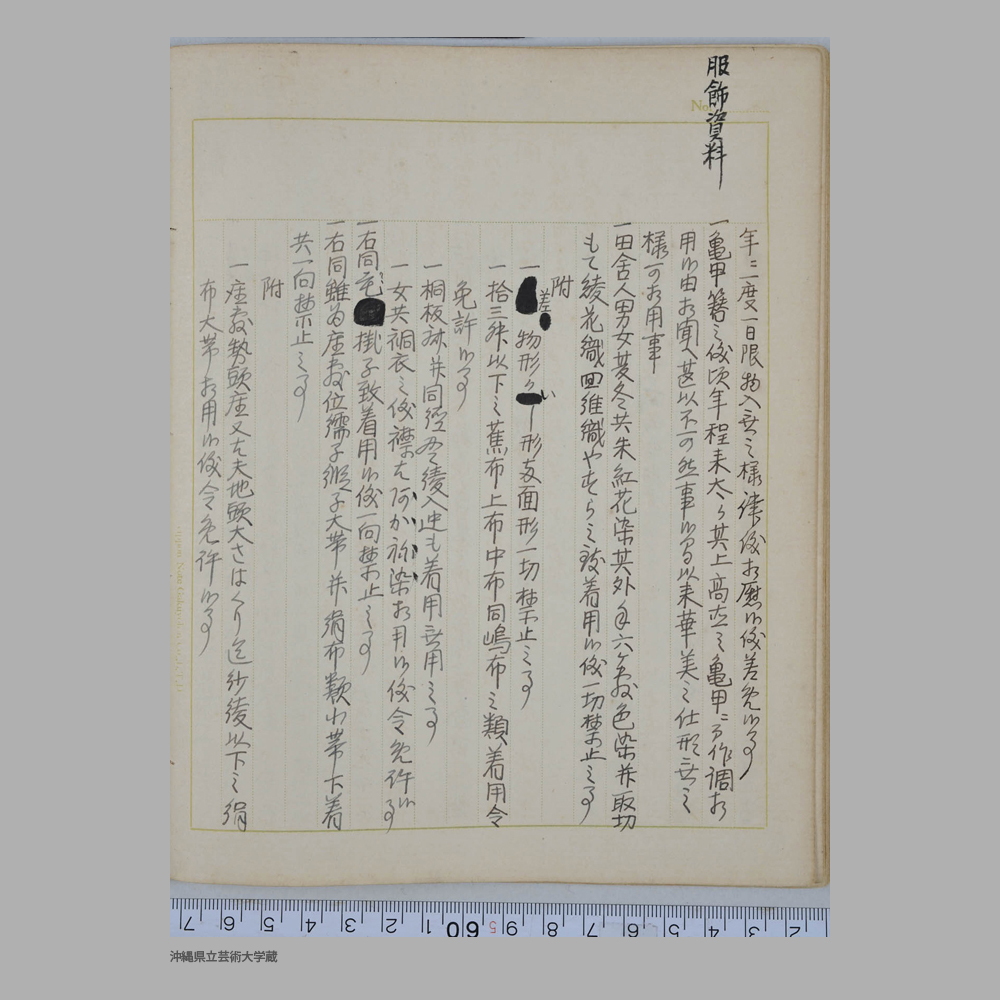 服飾資料
年ニ二度一日限物入無之様 儀相慰候儀差免候事
一亀甲簪之儀頃年程来太ク其上高直之亀甲ニ而作調相
用候由相聞甚以不可然事候自今以来華美之仕形無之
様可相用事
一田舎人男女夏冬共朱紅花染其外手六ヶ敷色染并取切
もて綾花織 織やすら之 着用候儀一切禁止之事
附
一 差 物形 い 形支面形一切禁止之事
一拾三舛以下之蕉布上布中布同嶋布之類着用令
免許候事
一桐板 并同 綾入 も着用無用之事
一女共裯衣之儀襟 か 染相用候儀令免許候事
一右同毛 掛子致着用候儀一向禁止之事
一右同雖為座敷位繻子緞子大帯并絹布類小帯下着
共一向禁止之事
附
一座敷勢頭座又は夫地頭大さはくり迄紗綾以下之絹
布大帯相用候儀令免許候事
No.
7 6 5 4 3 2 1 60 5 9 8 7 6 5 4 3 2
沖縄県立芸術大学蔵